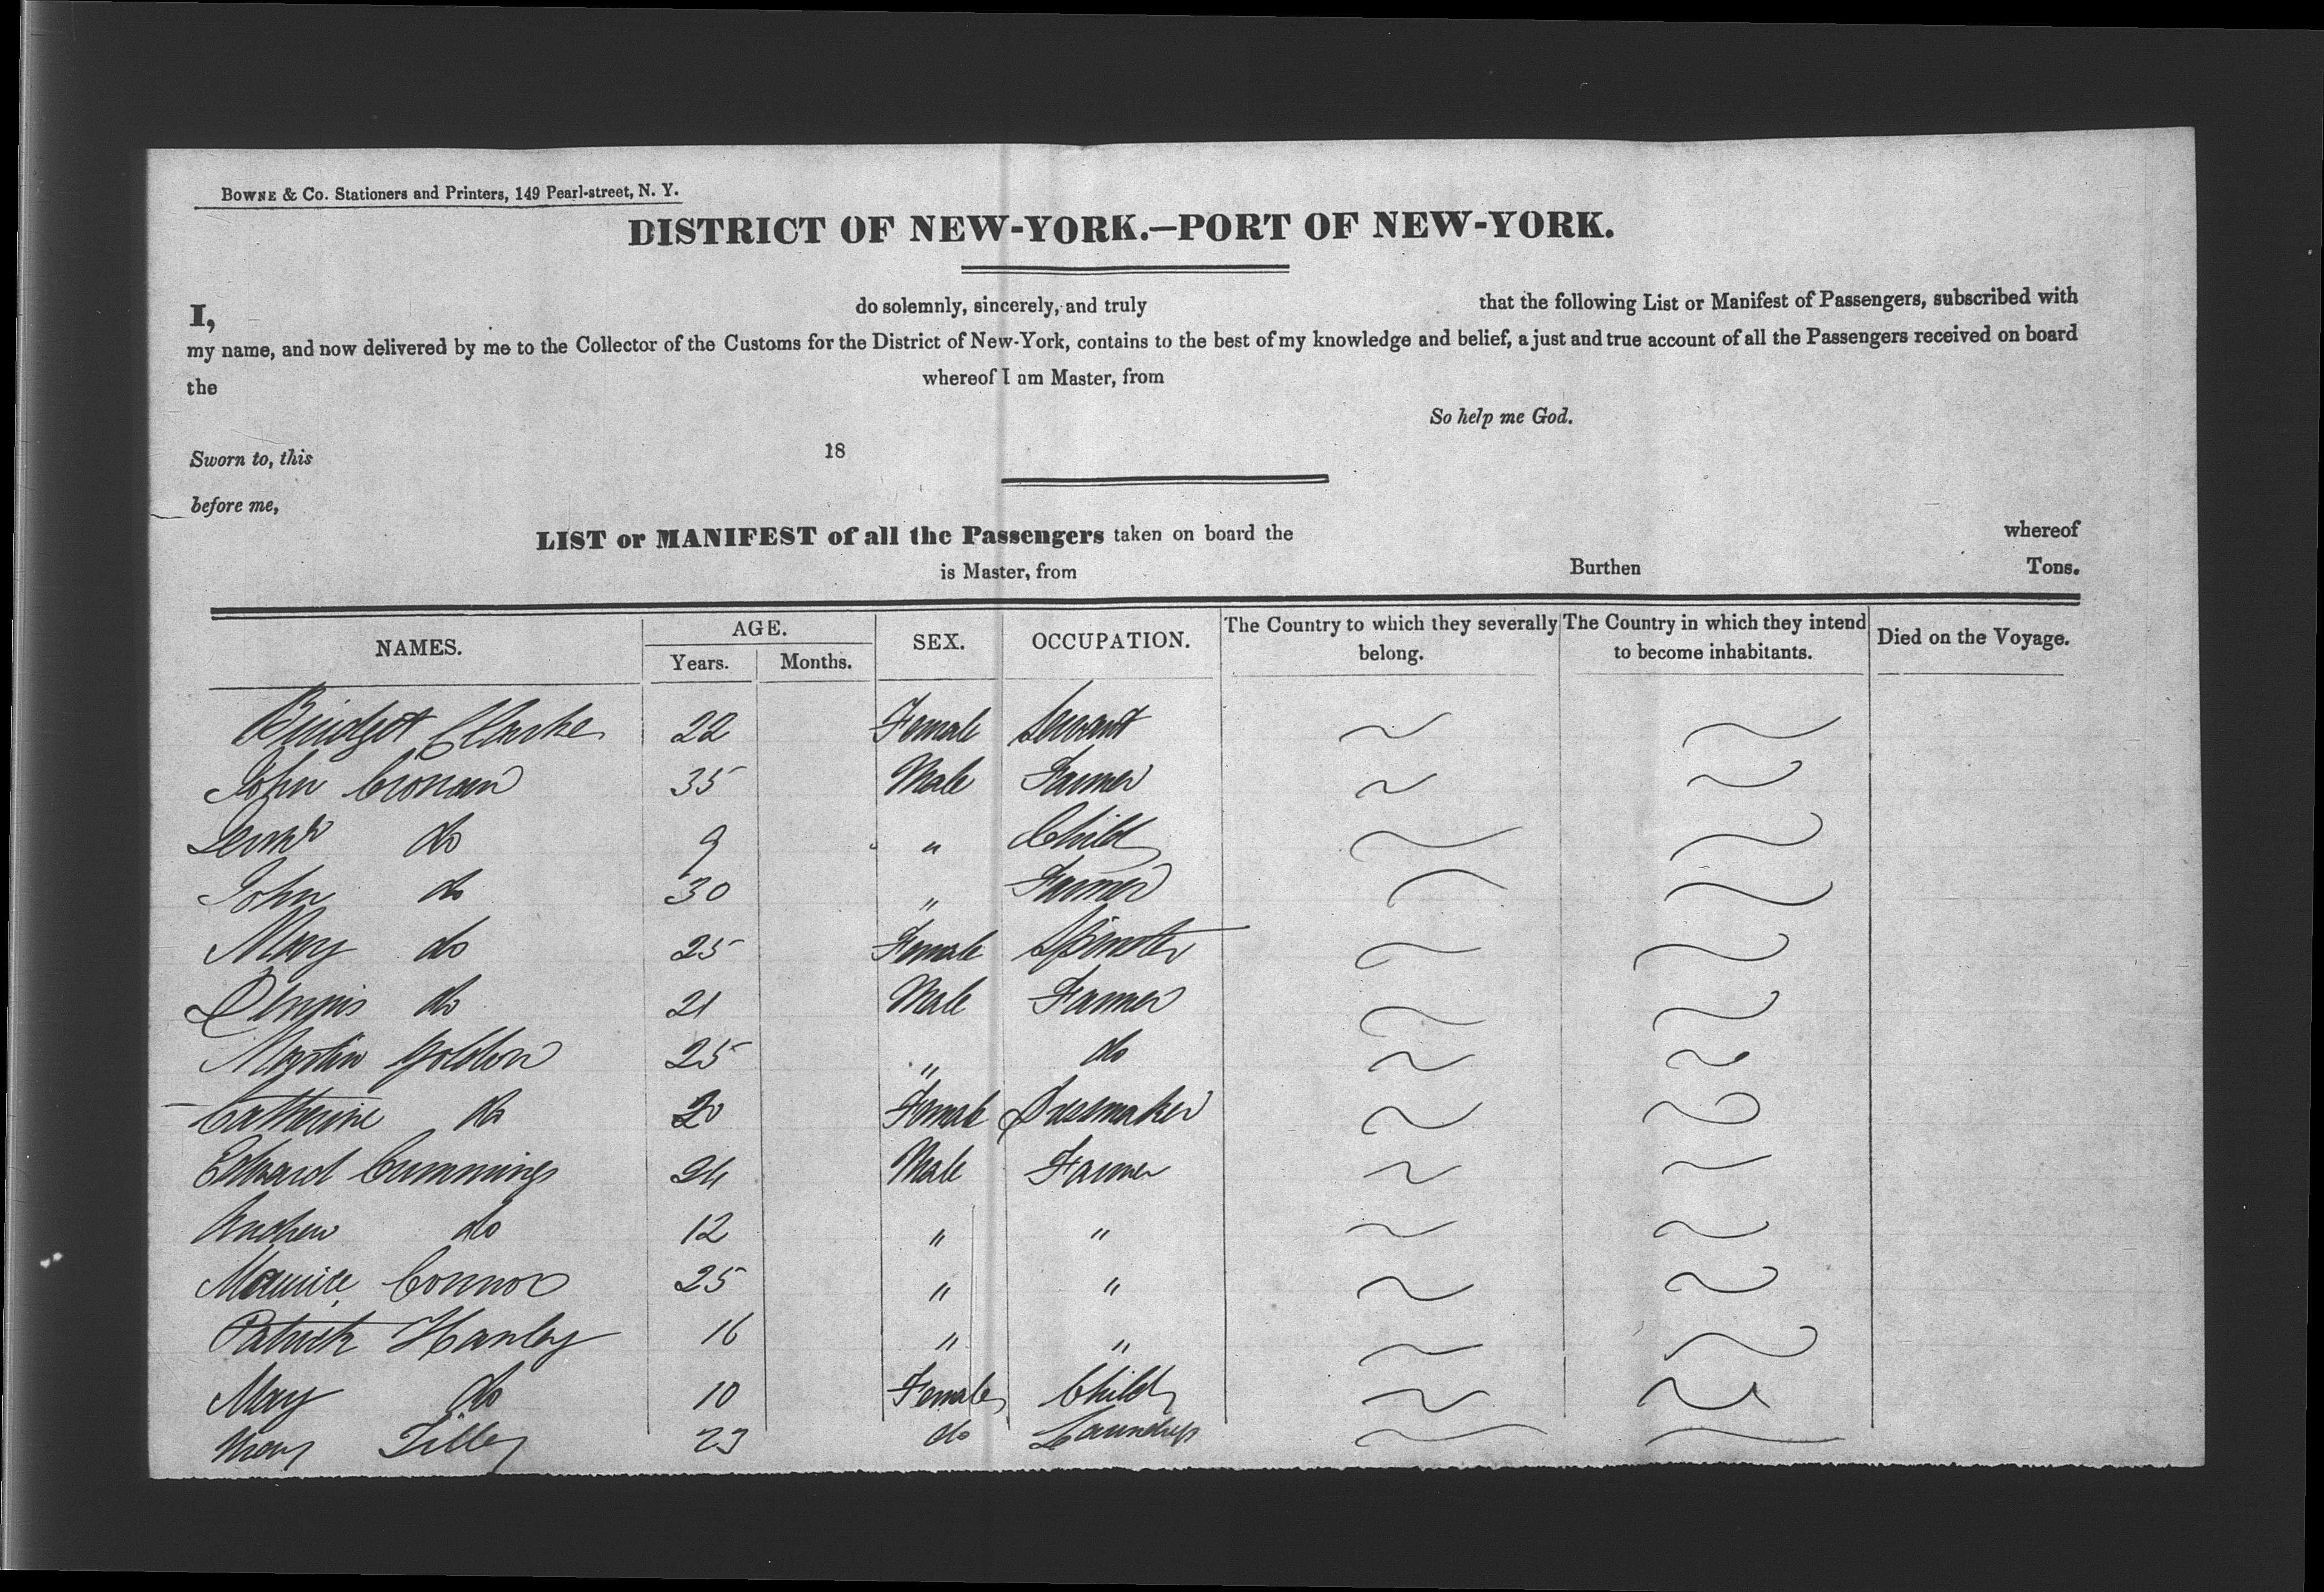 BOWNE & CO. Stationers and Printers, 149 Pearl-street, N. Y.
DISTRICT OF NEW-YORK.—PORT OF NEW-YORK.
I, do solemnly, sincerely, and truly that the following List or Manifest of Passengers, subscribed with
my name, and now delivered by me to the Collector of the Customs for the District of New-York, contains to the best of my knowledge and belief, a just and true account of all the Passengers received on board
the whereof I am Master, from
So help me God.
Sworn to, this 18
before me,
LIST or MANIFEST of all the Passengers taken on board the whereof
is Master, from Burthen Tons.
NAMES. AGE. Years. Months. SEX. OCCUPATION. The Country to which they severally belong. The Country in which they intend to become inhabitants. Died on the Voyage.
Bridget Clarke 22 Female Servant
John Cronan 35 Male Farmer
do 9 " Child
John do 30 " Farmer
Mary do 25 Female Spinster
Dennis do 21 Male Farmer
Martin Golden 25 " do
Catherine do 20 Female Dressmaker
Edward Cummings 24 Male Farmer
Andrew do 12 " "
Maurice Connor 25 " "
Patrick Hanley 16 " "
Mary do 10 Female Child
Mary Tilley 23 do Laundress